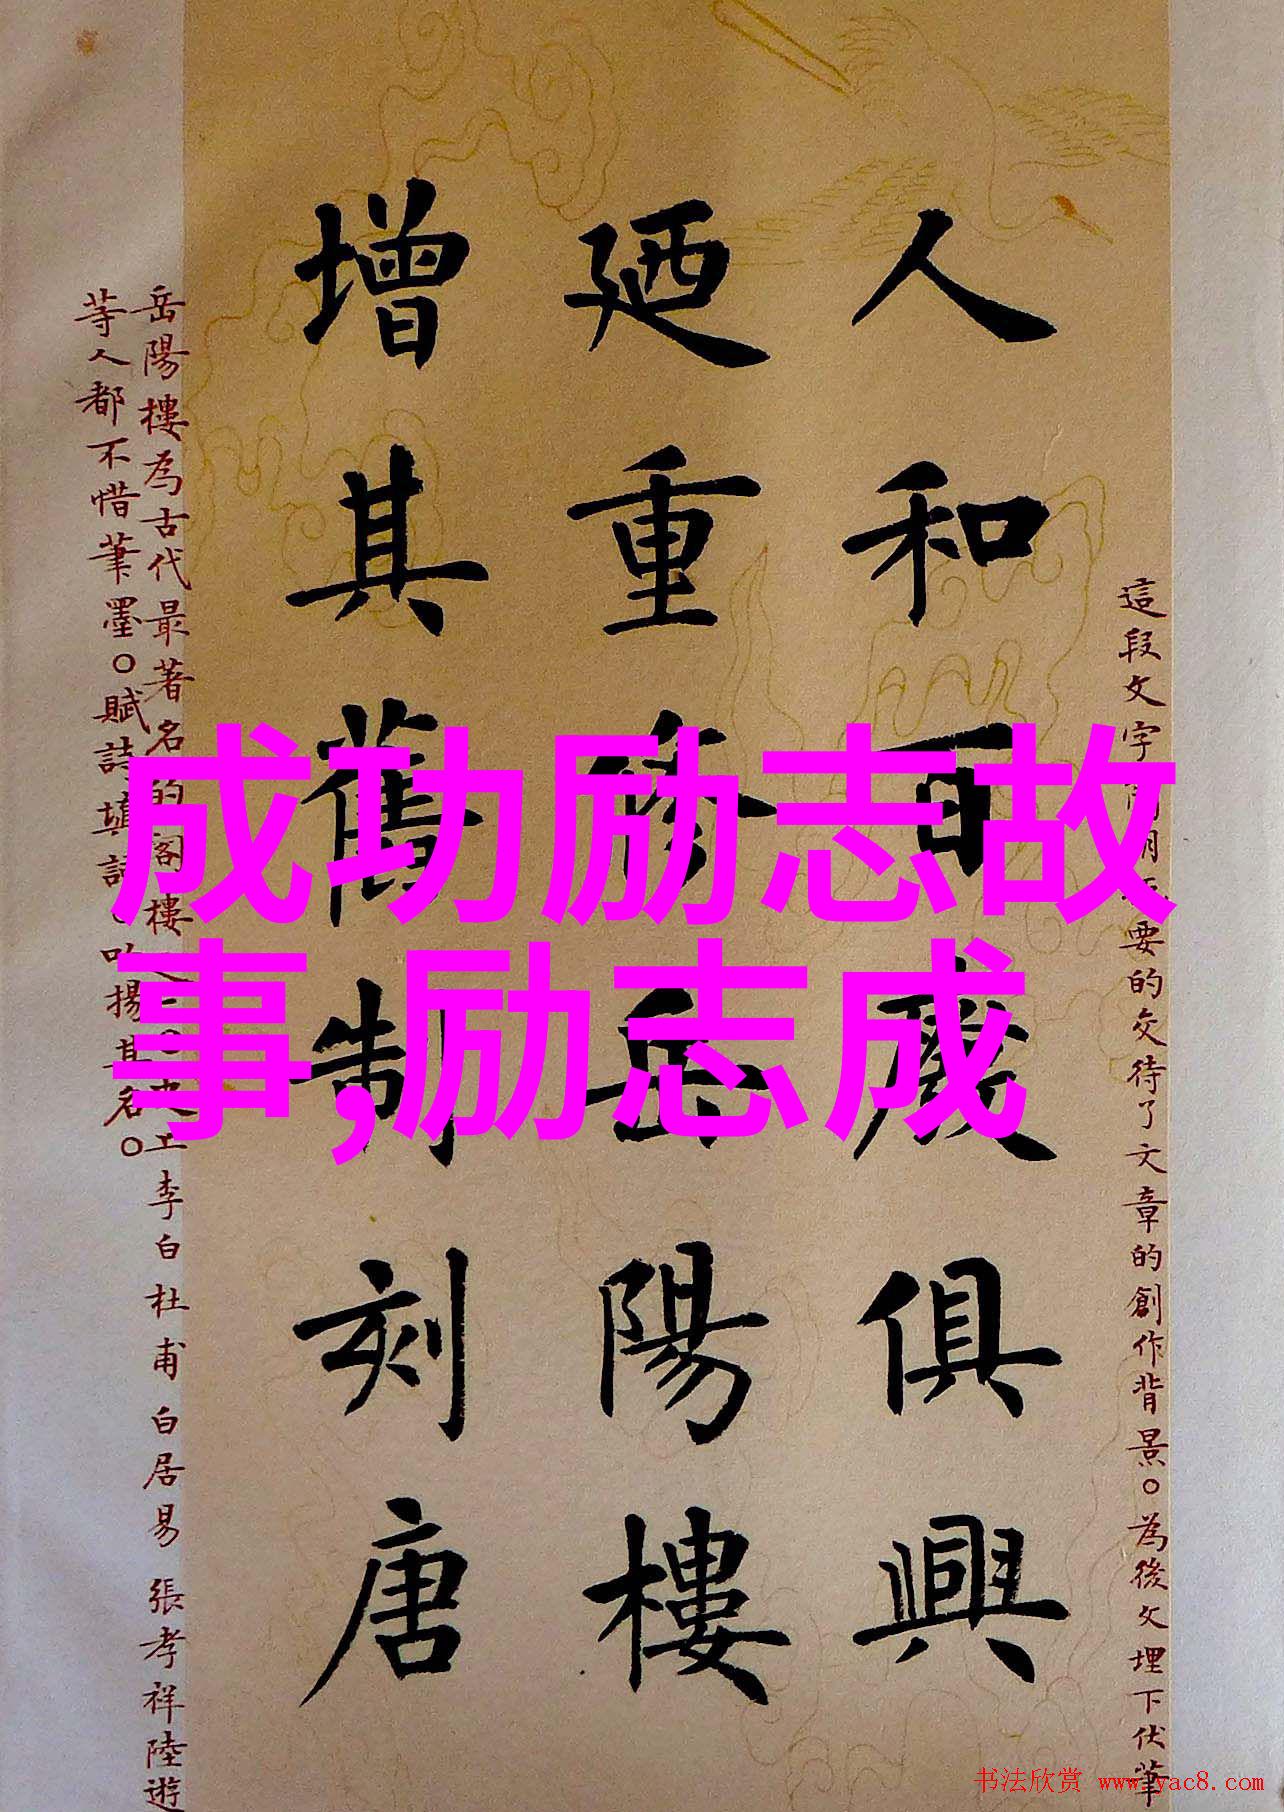 這段文字
要的交待了文章的創作背景。為後文埋下伏筆
人和百廢俱興
廼重修岳陽樓
增其舊制刻唐
岳陽樓為古代最著名的閣樓
李白杜甫白居易張孝祥陸遊
等人都不惜筆墨。賦詩填詞。吟揚其名。
成功励志故
事,励志成
书法欣赏 www.yac8.com